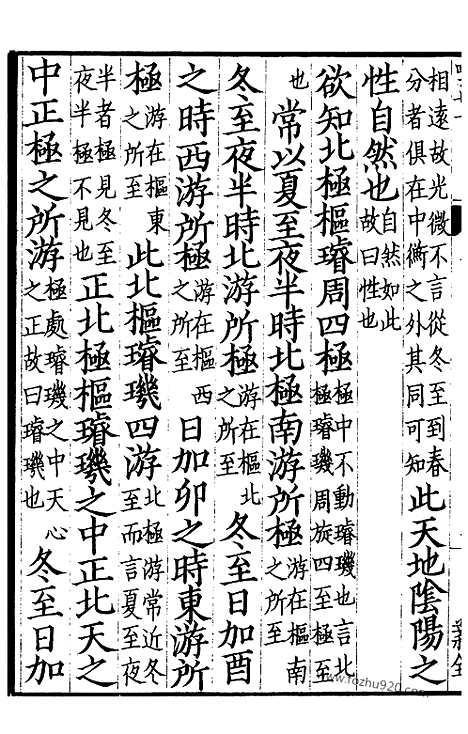 相遠故光微不言從冬至到春分者俱在中衡之外其同可知此天地陰陽之
性自然也自然如此故曰性也
欲知北極樞璿周四極極中不動璿璣也言北極璿璣周旋四至極至
也常以夏至夜半時北極南游所極游在樞南之所至
冬至夜半時北游所極游在樞北之所至冬至日加酉
之時西游所極游在樞西之所至日加卯之時東游所
極游在樞東之所至此北樞璿璣四游北極游常近冬至而言夏至夜
半者極見冬至夜半極不見也正北極樞璿璣之中正北天之
中正極之所游極處璿璣之中天心之正故曰璿璣也冬至日加
www.fozhu920.com